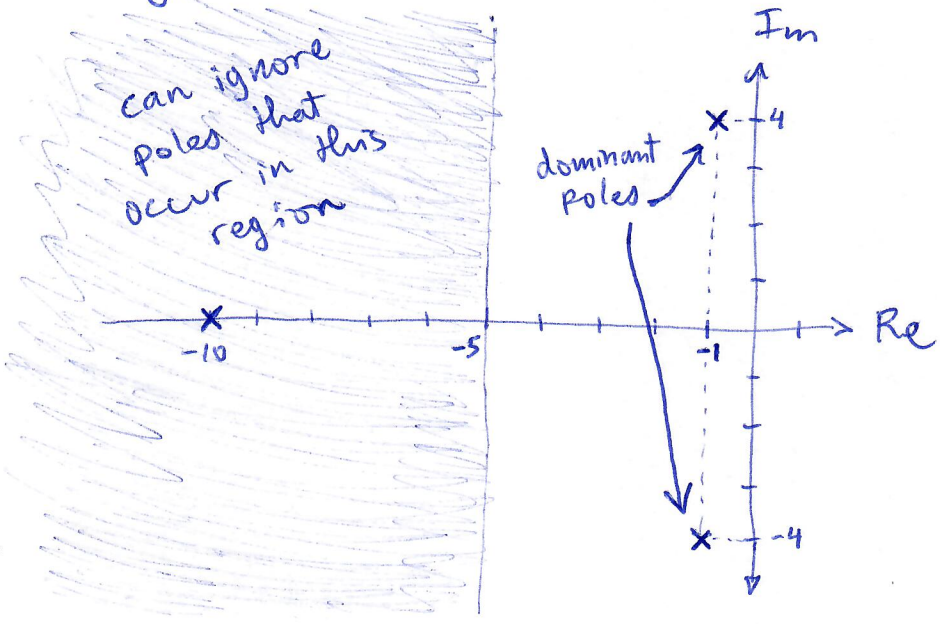 can ignore
poles that
occur in this
region
Im
4
dominant
poles
Re
-10
-5
-1
-4